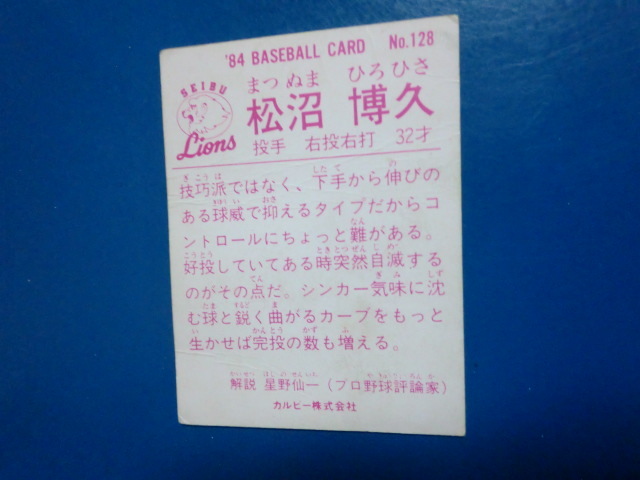 '84 BASEBALL CARD No.128
SEIBU
Lions
まつ ぬま ひろ ひさ
松沼 博久
投手 右投右打 32才
技巧派ではなく、下手から伸びの
ある球威で抑えるタイプだからコ
ントロールにちょっと難がある。
好投していてある時突然自滅する
のがその点だ。シンカー気味に沈
む球と鋭く曲がるカーブをもっと
生かせば完投の数も増える。
解説 星野仙一(プロ野球評論家)
カルビー株式会社